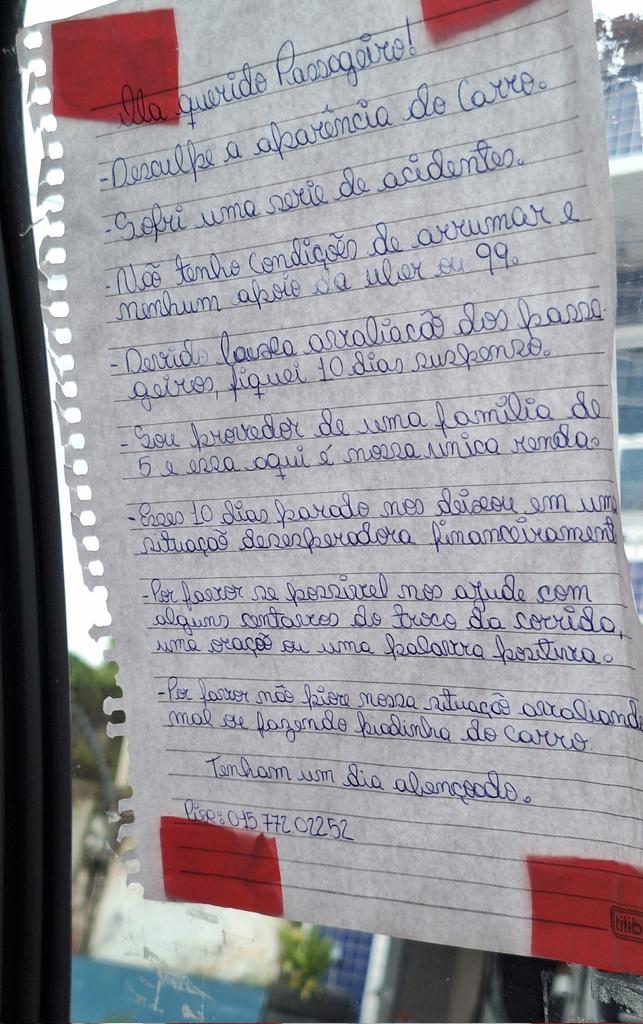 Ola querido Passageiro!
-Desculpe a aparência do Carro.
-Sofri uma serie de acidentes.
-Não tenho condições de arrumar e
nenhum apoio da uber ou 99.
-Devido baixa avaliação dos passa
geiros, fiquei 10 dias suspenso.
-Sou provedor de uma família de
5 e essa aqui é nossa unica renda.
-Esses 10 dias parado nos deixou em um
situação desesperadora financeirament
-Por favor se possivel nos ajude com
alguns centavos do troco da corrida,
uma oração ou uma palavra positiva.
-Por favor não piore nossa situação avaliand
mal ou fazendo piadinha do carro.
Tenham um dia abençoado.
015 772 022 52
tilib